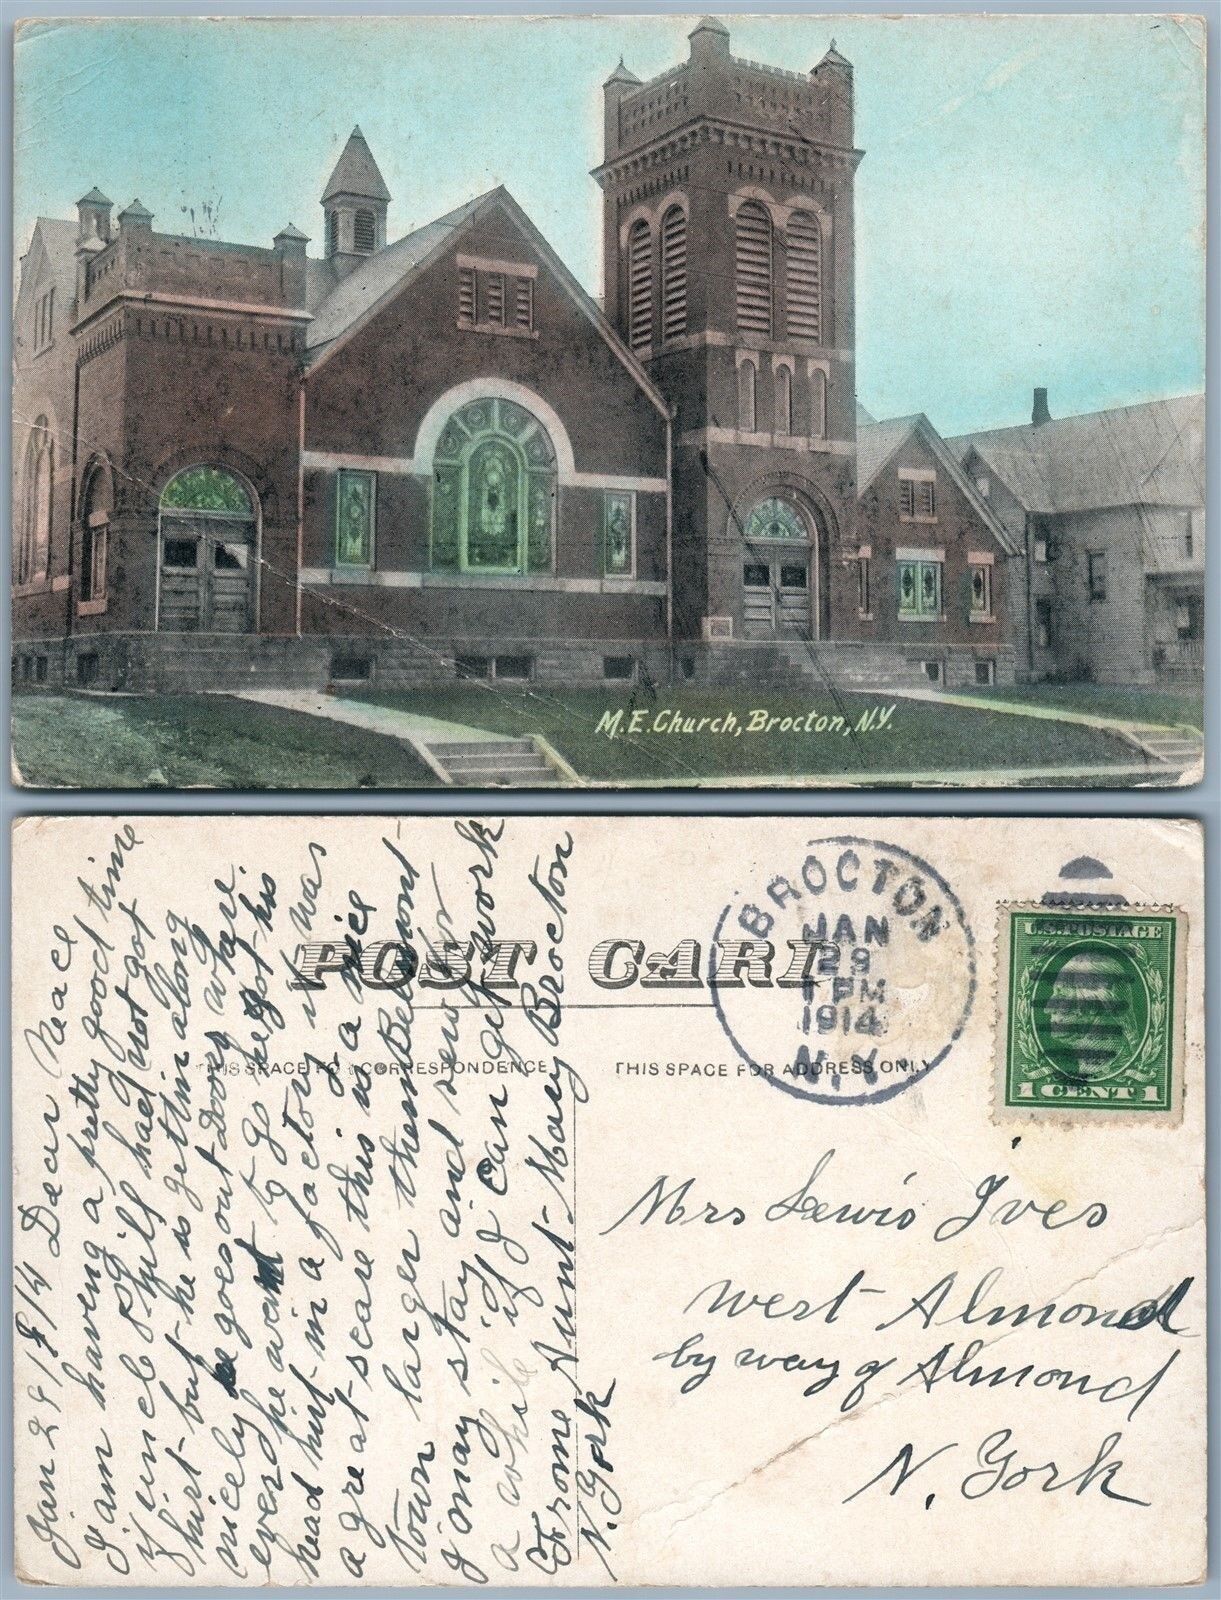 M.E. Church, Brocton, N.Y.
POST CARD
THIS SPACE FOR CORRESPONDENCE
THIS SPACE FOR ADDRESS ONLY
BROCTON
JAN
29
1 PM
1914
N.Y.
U.S. POSTAGE
1 CENT 1
Jan 29/14 Dear Neace
I am having a pretty good time
if uncle had not got
hurt but he is getin along
nicely he goes out Doors
ever he want to go he got his
head hurt in a factory it was
a great scare this is a nice
town larger then Belmont
I may stay and sew for
a while if I can get work
From Aunt Mary Brocton
N. York
Mrs Lewis Ives
West Almond
by way of Almond
N. York